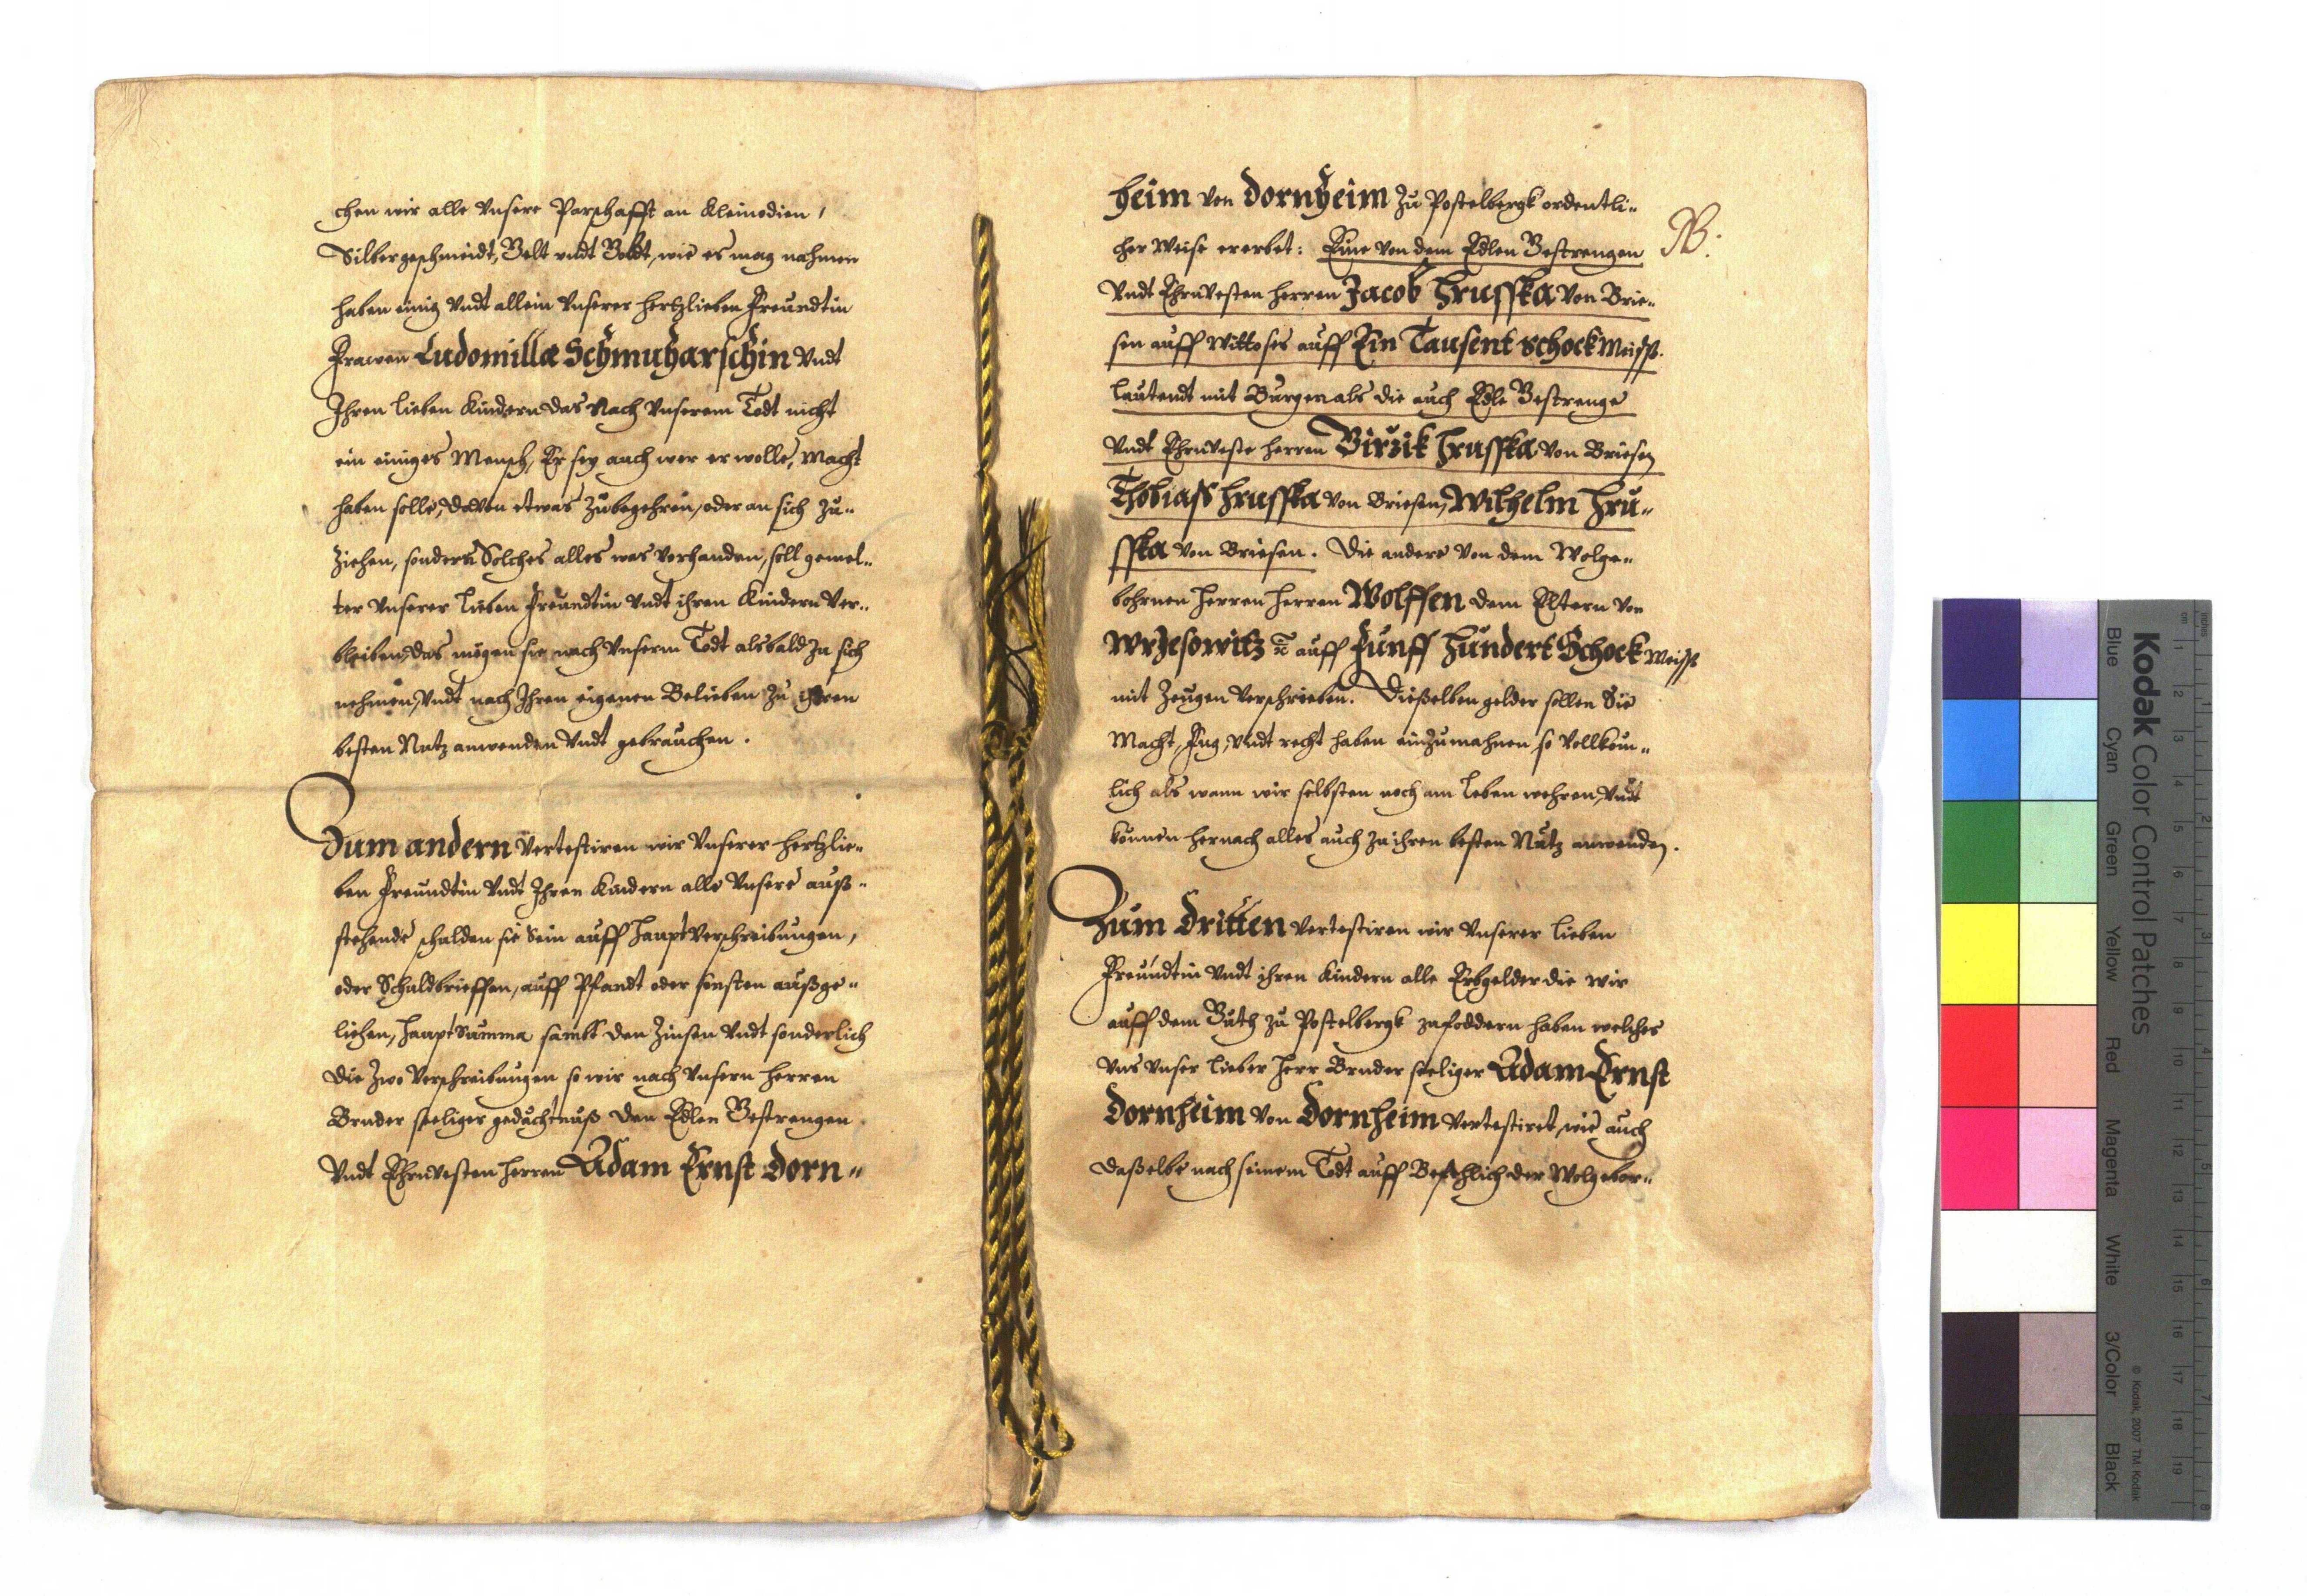 chen wir alle Vnsere Parschafft an Kleinodien,
Silbergeschmeidt, Gelt vndt Goldt, wie es mag nahmen
haben einig Vndt allein Vnserer hertzlieben Freundtin
Frawen Ludomilla Schmuharschin Vndt
Ihren lieben Kindern das Nach Vnserem Todt nicht
ein einiges Mensch, Er sey auch wer er wolle, Macht
haben solle, davon etwas zubegehren, oder an sich zu„
ziehen, sondern Solches alles was verhanden, soll gemel„
ter Vnserer lieben Freundtin Vndt ihren Kindern Ver„
bleiben, das mögen sie nach Vnserm Todt alsbald zu sich
nehmen, Vndt nach Ihren eigenen Belieben zu ihren
besten Nutz anwenden Vndt gebrauchen.
Zum andern Vertestiren wir Vnserer hertzlie„
ben Freundtin Vndt Ihren Kindern alle Vnsere auß„
stehende schulden sie Sein auff Haupt Verschreibungen,
oder Schuldbrieffen, auff Pfandt oder sonsten außge„
liehen, Haupt Summa sambt den Zinsen Vndt sonderlich
die Zwo Verschreibungen so wir nach Vnsern Herren
Bruder seeliger gedächtnuß den Edlen Gestrengen
Vndt Ehrnvesten Herren Adam Ernst Dorn„
heim von Dornheim zu Postelbergk ordentli„
cher Weise ererbet: Eine von dem Edlen Gestrengen
NB.
Vndt Ehrnvesten Herren Jacob Hrusska von Brie„
sen auff Wittoses auff Ein Tausent schock Meiss.
lautendt mit Burgen als die auch Edle Gestrenge
Vndt Ehrnveste Herren Girzik Hrusska von Briesen
Thobiass Hrusska von Briesen, Wilhelm Hru„
sska von Briesen. Die andere von dem Wolge„
bohrnen Herren Herren Wolffen dem Eltern von
Wrzesowitz auff Funff Hundert Schock Meiss
mit Zeugen Verschrieben. Dieselben gelder sollen Sie
Macht, Fug, Vndt recht haben einzumahnen so Vollköm„
lich als wann wir selbsten noch am leben wehren, Vndt
können hernach alles auch zu ihren besten Nutz anwenden.
Zum Dritten Vertestiren wir Vnserer lieben
Freundtin Vndt ihren Kindern alle Erbgelder die wir
auff dem Guth zu Postelbergk zufoddern haben welches
Vns Vnser lieber Herr Bruder seeliger Adam Ernst
Dornheim von Dornheim Vertestiret, wie auch
daßelbe nach seinem Todt auff Befehlich der Wolgebor„
Kodak Color Control Patches
Blue Cyan Green Yellow Red Magenta White 3/Color Black
© Kodak, 2007 TM: Kodak
cm 1 2 3 4 5 6 7 8 9 10 11 12 13 14 15 16 17 18 19
inches 1 2 3 4 5 6 7 8